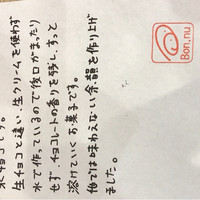 生チョコと違い、生クリームを使わず
水で作っているので後口がまったり
せず、チョコレートの香りを残し、すっと
溶けていくお菓子です。
他では味わえない余韻を作り上げ
ました。
Bon.nu